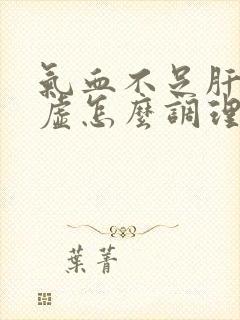 氣血不足肝
虛怎麼調理
葉菁